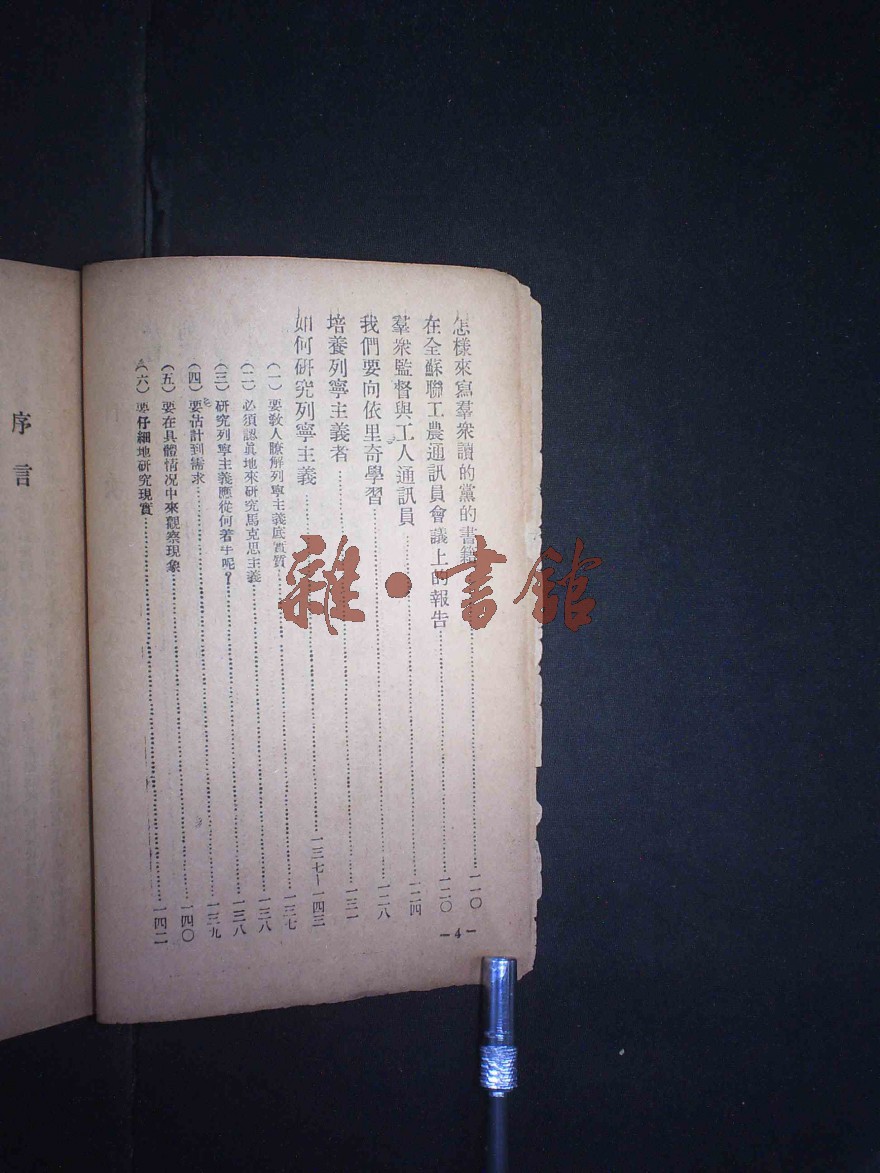 怎樣來寫羣衆讀的黨的書籍……一一〇
在全蘇聯工農通訊員會議上的報告……一二〇
羣衆監督與工人通訊員……一二四
我們要向依里奇學習……一二八
培養列寧主義者……一三一
如何研究列寧主義……一三七—一四三
(一)要敎人瞭解列寧主義底實質……一三七
(二)必須認眞地來研究馬克思主義……一三八
(三)研究列寧主義應從何着手呢?……一三九
(四)要估計到需求……一四〇
(五)要在具體情况中來觀察現象
(六)要仔細地研究現實……一四二
—4—
序言
雜·書館